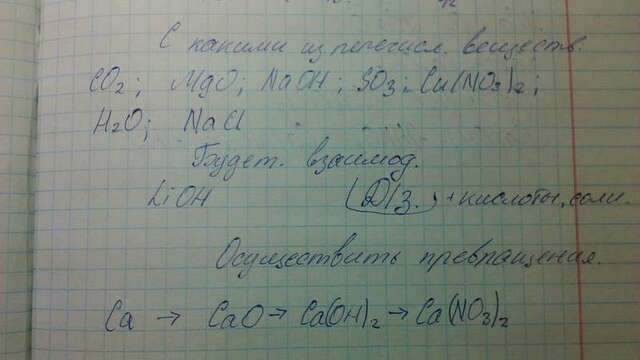 С какими из перечисл. веществ.
CO₂; MgO; NaOH; SO₃; Cu(NO₃)₂;
H₂O; NaCl
Будет. взаимод.
LiOH (D/з.) + кислоты, соли.
Осуществить превращения.
Ca → CaO → Ca(OH)₂ → Ca(NO₃)₂